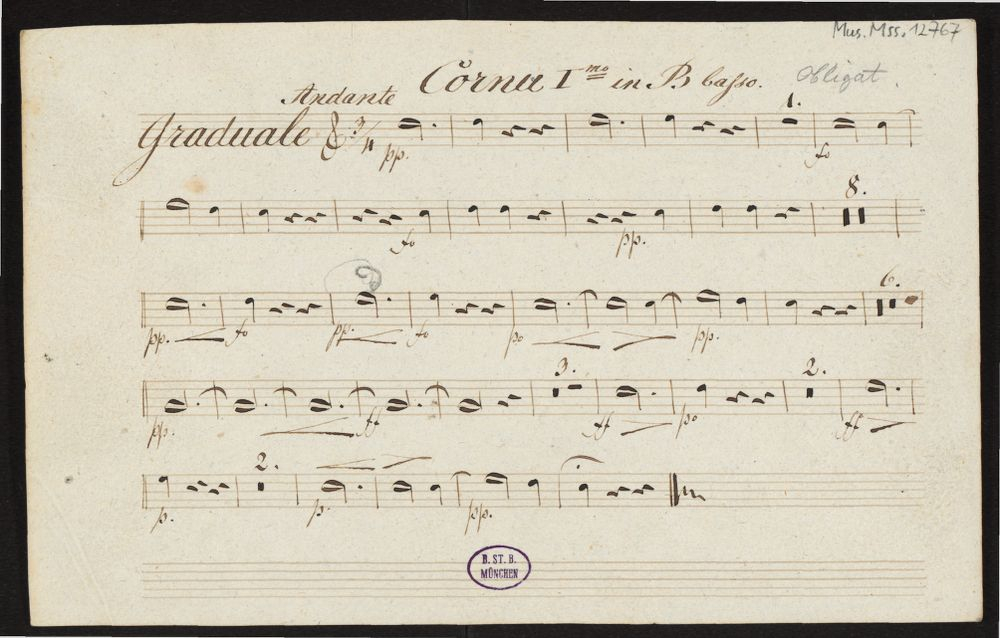 Mus. Mss. 12767
Cornu I mo in B basso. obligat
Andante
Graduale 3/4 1.
pp. fo
8.
fo pp.
6.
pp. fo pp. fo po pp.
3. 2.
pp. ff ff po ff
2.
p. p. pp.
B. ST. B.
MÜNCHEN